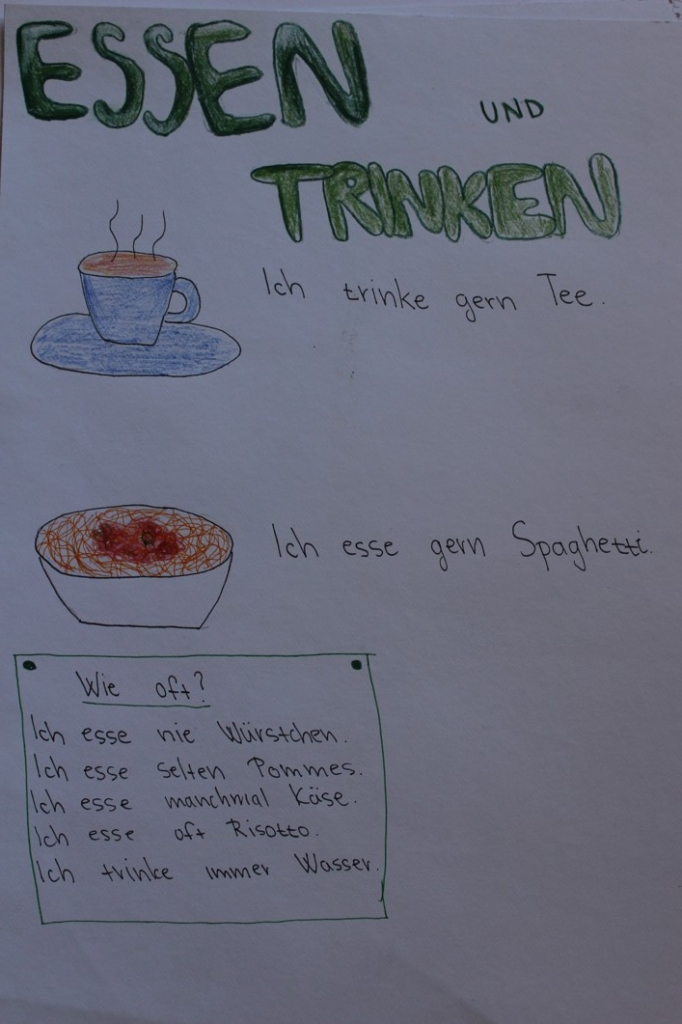 ESSEN
UND
TRINKEN
Ich trinke gern Tee.
Ich esse gern Spaghetti.
Wie oft?
Ich esse nie Würstchen.
Ich esse selten Pommes.
Ich esse manchmal Käse.
Ich esse oft Risotto.
Ich trinke immer Wasser.